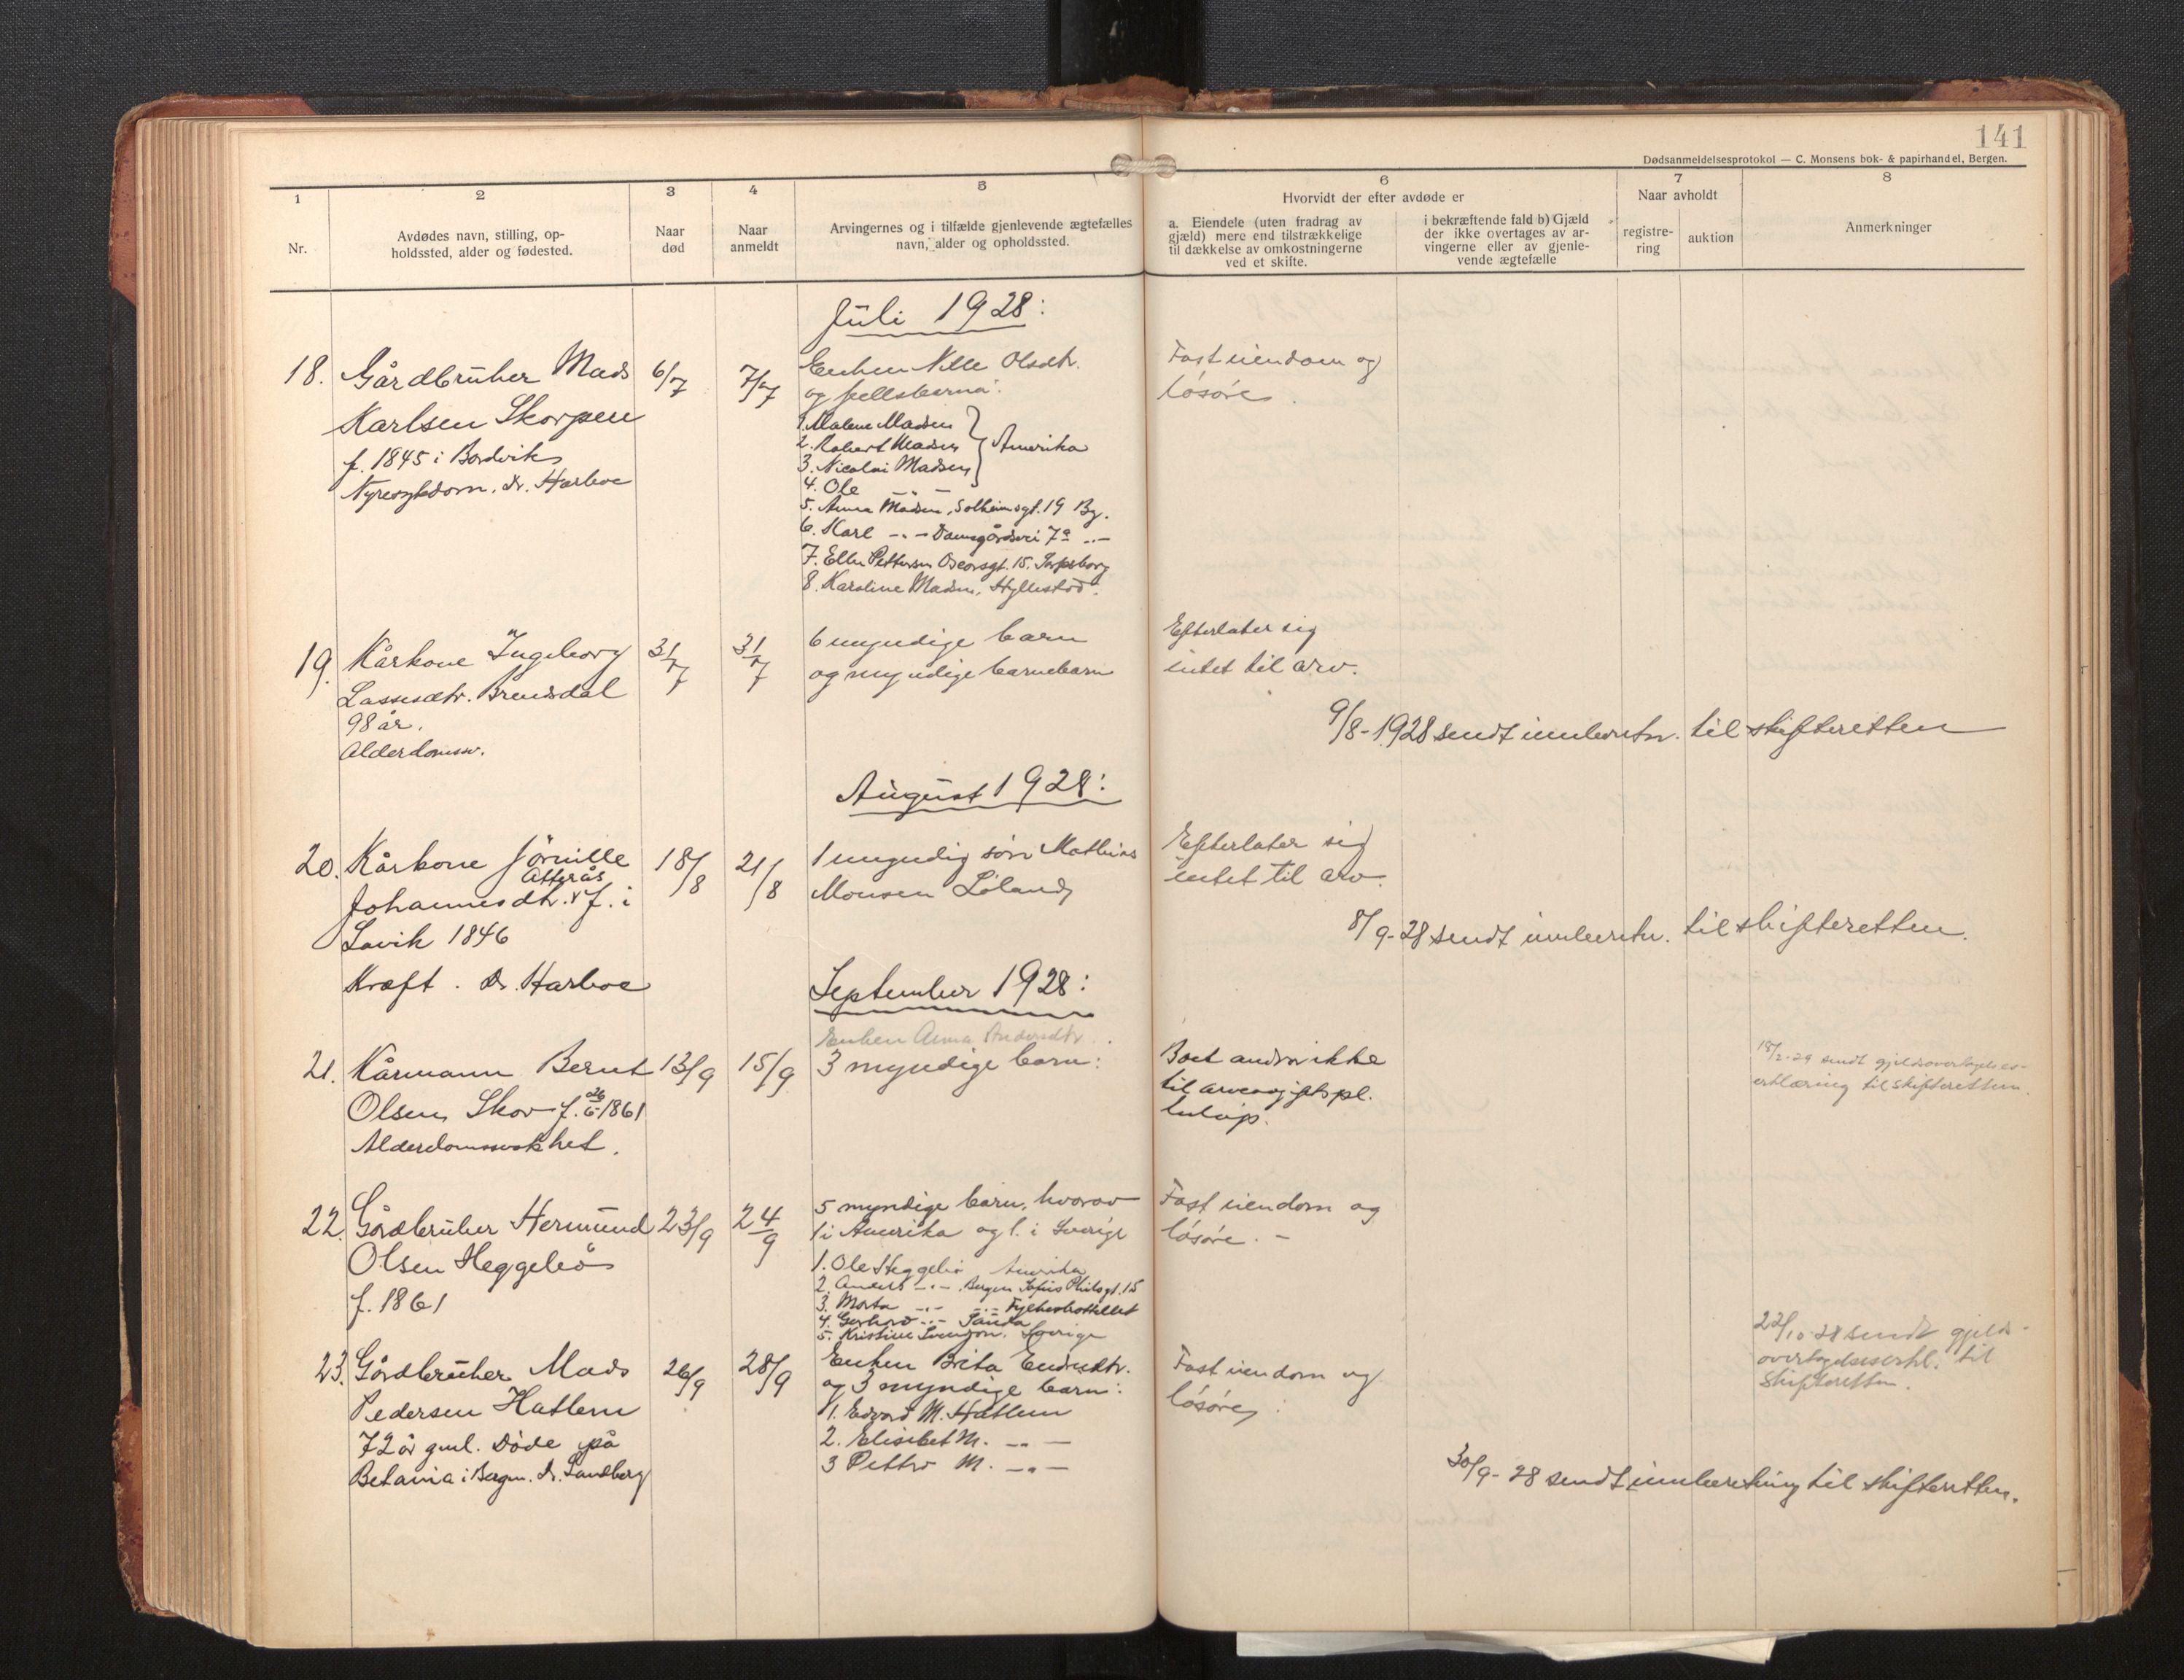 141
Dødsanmeldelsesprotokol — C. Monsens bok- & papirhandel, Bergen.
1
Nr.
2
Avdødes navn, stilling, op-
holdssted, alder og fødested.
3
Naar
død
4
Naar
anmeldt
5
Arvingernes og i tilfælde gjenlevende ægtefælles
navn, alder og opholdssted.
6
Hvorvidt der efter avdøde er
a. Eiendele (uten fradrag av
gjæld) mere end tilstrækkelige
til dækkelse av omkostningerne
ved et skifte.
i bekræftende fald b) Gjæld
der ikke overtages av ar-
vingerne eller av gjenle-
vende ægtefælle
7
Naar avholdt
registre-
ring
auktion
8
Anmerkninger
Juli 1928:
18. Gårdbruker Mads
Karlsen Skorpen
f. 1845 i Bordvik
Nyresykdom. Dr. Harboe
6/7
7/7
Enken Olsdtr.
og fellesbarna:
1. Malene Madsen
2. Robert Madsen
3. Nicolai Madsen
Amerika
4. Ole -"-
5. Anna Madsen, Solheimsgt. 19 Bg.
6. Karl -"- Damsgårdsvei 7a -"-
7. Ellen Pettersen Oscarsgt. 15. Sarpsborg
8. Karoline Madsen, Hyllestad.
Fast eiendom og
løsøre.
19. Kårkone Ingeborg
Lassesdtr. Brensdal
98 år.
Alderdomssv.
31/7
31/7
6 myndige barn
og myndige barnebarn
Efterlater sig
intet til arv.
9/8-1928 sendt innberetn. til skifteretten
August 1928:
20. Kårkone Jørnille
Atterås
Johannesdtr. f. i
Lavik 1846
Kræft. Dr. Harboe
18/8
21/8
1 myndig søn Mathias
Monsen Løland
Efterlater sig
intet til arv.
8/9-28 sendt innberetn. til skifteretten.
September 1928:
Enken Anna Andersdtr.
21. Kårmann Bernt
Olsen Skor f. 26/6 1861
Alderdomssvakhet.
13/9
15/9
3 myndige barn:
Boet andrar ikke
til arveavgiftspl.
beløp.
18/2-29 sendt gjeldsovertagelses-
erklæring til skifteretten.
22. Gårdbruker Hermund
Olsen Heggebø
f. 1861
23/9
24/9
5 myndige barn, hvorav
1 i Amerika og 1. i Sverige
1. Ole Heggebø Amerika
2. Anders -"- Bergen 15
3. Marta -"- -"- Fylkeshotellet
4. Gerhard -"-
5. Kristine Svenson. Sverige
Fast eiendom og
løsøre. -
22/10-28 sendt gjelds-
overtagelseserkl. til
skifteretten.
23. Gårdbruker Mads
Pedersen Hatlem
72 år gml. Døde på
Betania i Bergen. Dr. Sandberg
26/9
28/9
Enken Brita Endresdtr.
og 3 myndige barn:
1. Edvard M. Hatlem
2. Elisebet M. -"-
3 Petter M. -"-
Fast eiendom og
løsøre.
30/9-28 sendt innberetning til skifteretten.